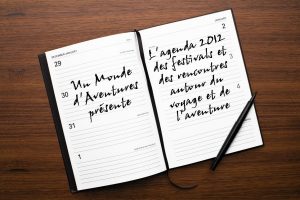 29
30
31
1
Un Monde
d'Aventures
présente
2
3
4
L'agenda 2012
des festivals et
des rencontres
autour du
voyage et de
l'aventure